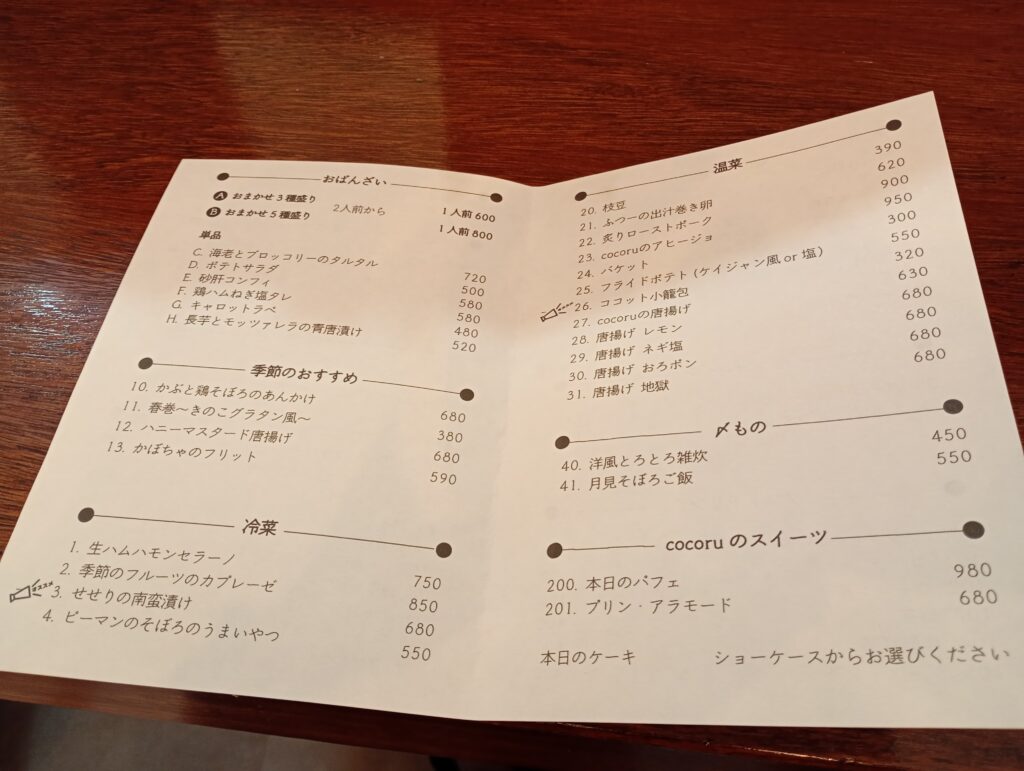 おばんざい
A おまかせ3種盛り 1人前 600
B おまかせ5種盛り 2人前から 1人前 800
単品
C. 海老とブロッコリーのタルタル 720
D. ポテトサラダ 500
E. 砂肝コンフィ 580
F. 鶏ハムねぎ塩タレ 580
G. キャロットラペ 480
H. 長芋とモッツァレラの青唐漬け 520
季節のおすすめ
10. かぶと鶏そぼろのあんかけ 680
11. 春巻〜きのこグラタン風〜 380
12. ハニーマスタード唐揚げ 680
13. かぼちゃのフリット 590
冷菜
1. 生ハムハモンセラーノ 750
2. 季節のフルーツのカプレーゼ 850
オススメ
3. せせりの南蛮漬け 680
4. ピーマンのそぼろのうまいやつ 550
温菜
20. 枝豆 390
21. ふつーの出汁巻き卵 620
22. 炙りローストポーク 900
23. cocoruのアヒージョ 950
24. バケット 300
25. フライドポテト (ケイジャン風 or 塩) 550
26. ココット小籠包 320
27. cocoruの唐揚げ 630
28. 唐揚げ レモン 680
29. 唐揚げ ネギ塩 680
30. 唐揚げ おろポン 680
31. 唐揚げ 地獄 680
〆もの
40. 洋風とろとろ雑炊 450
41. 月見そぼろご飯 550
cocoru のスイーツ
200. 本日のパフェ 980
201. プリン・アラモード 680
本日のケーキ ショーケースからお選びください